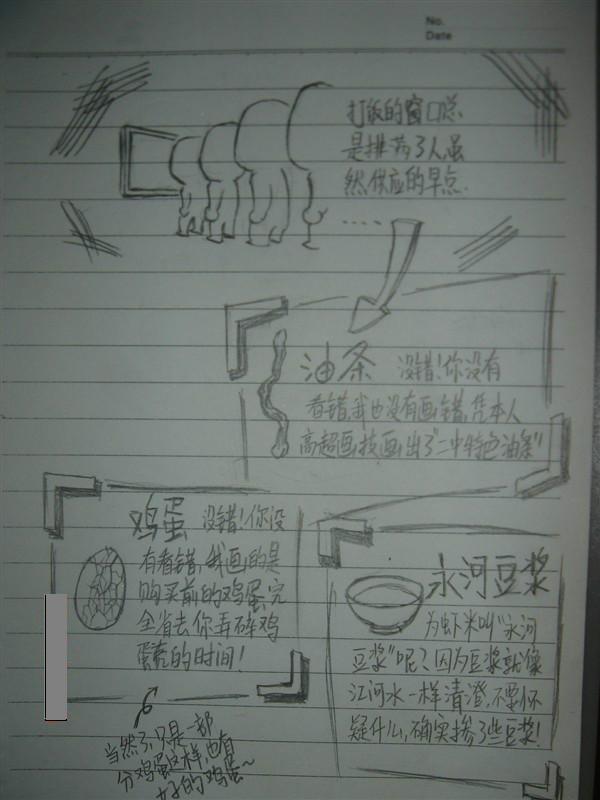 No.
Date
打饭的窗口总
是排满了人虽
然供应的早点
....
油条 没错!你没有
看错,我也没有画错,凭本人
高超画技画出了"二中特色油条"
鸡蛋 没错!你没
有看错,我画的是
购买前的鸡蛋,完
全省去你弄碎鸡
蛋壳的时间!
当然了,只是一部
分鸡蛋这样,也有
好的鸡蛋~
永河豆浆
为虾米叫"永河
豆浆"呢?因为豆浆就像
江河水一样清澄,不要怀
疑什么,确实掺了些豆浆!